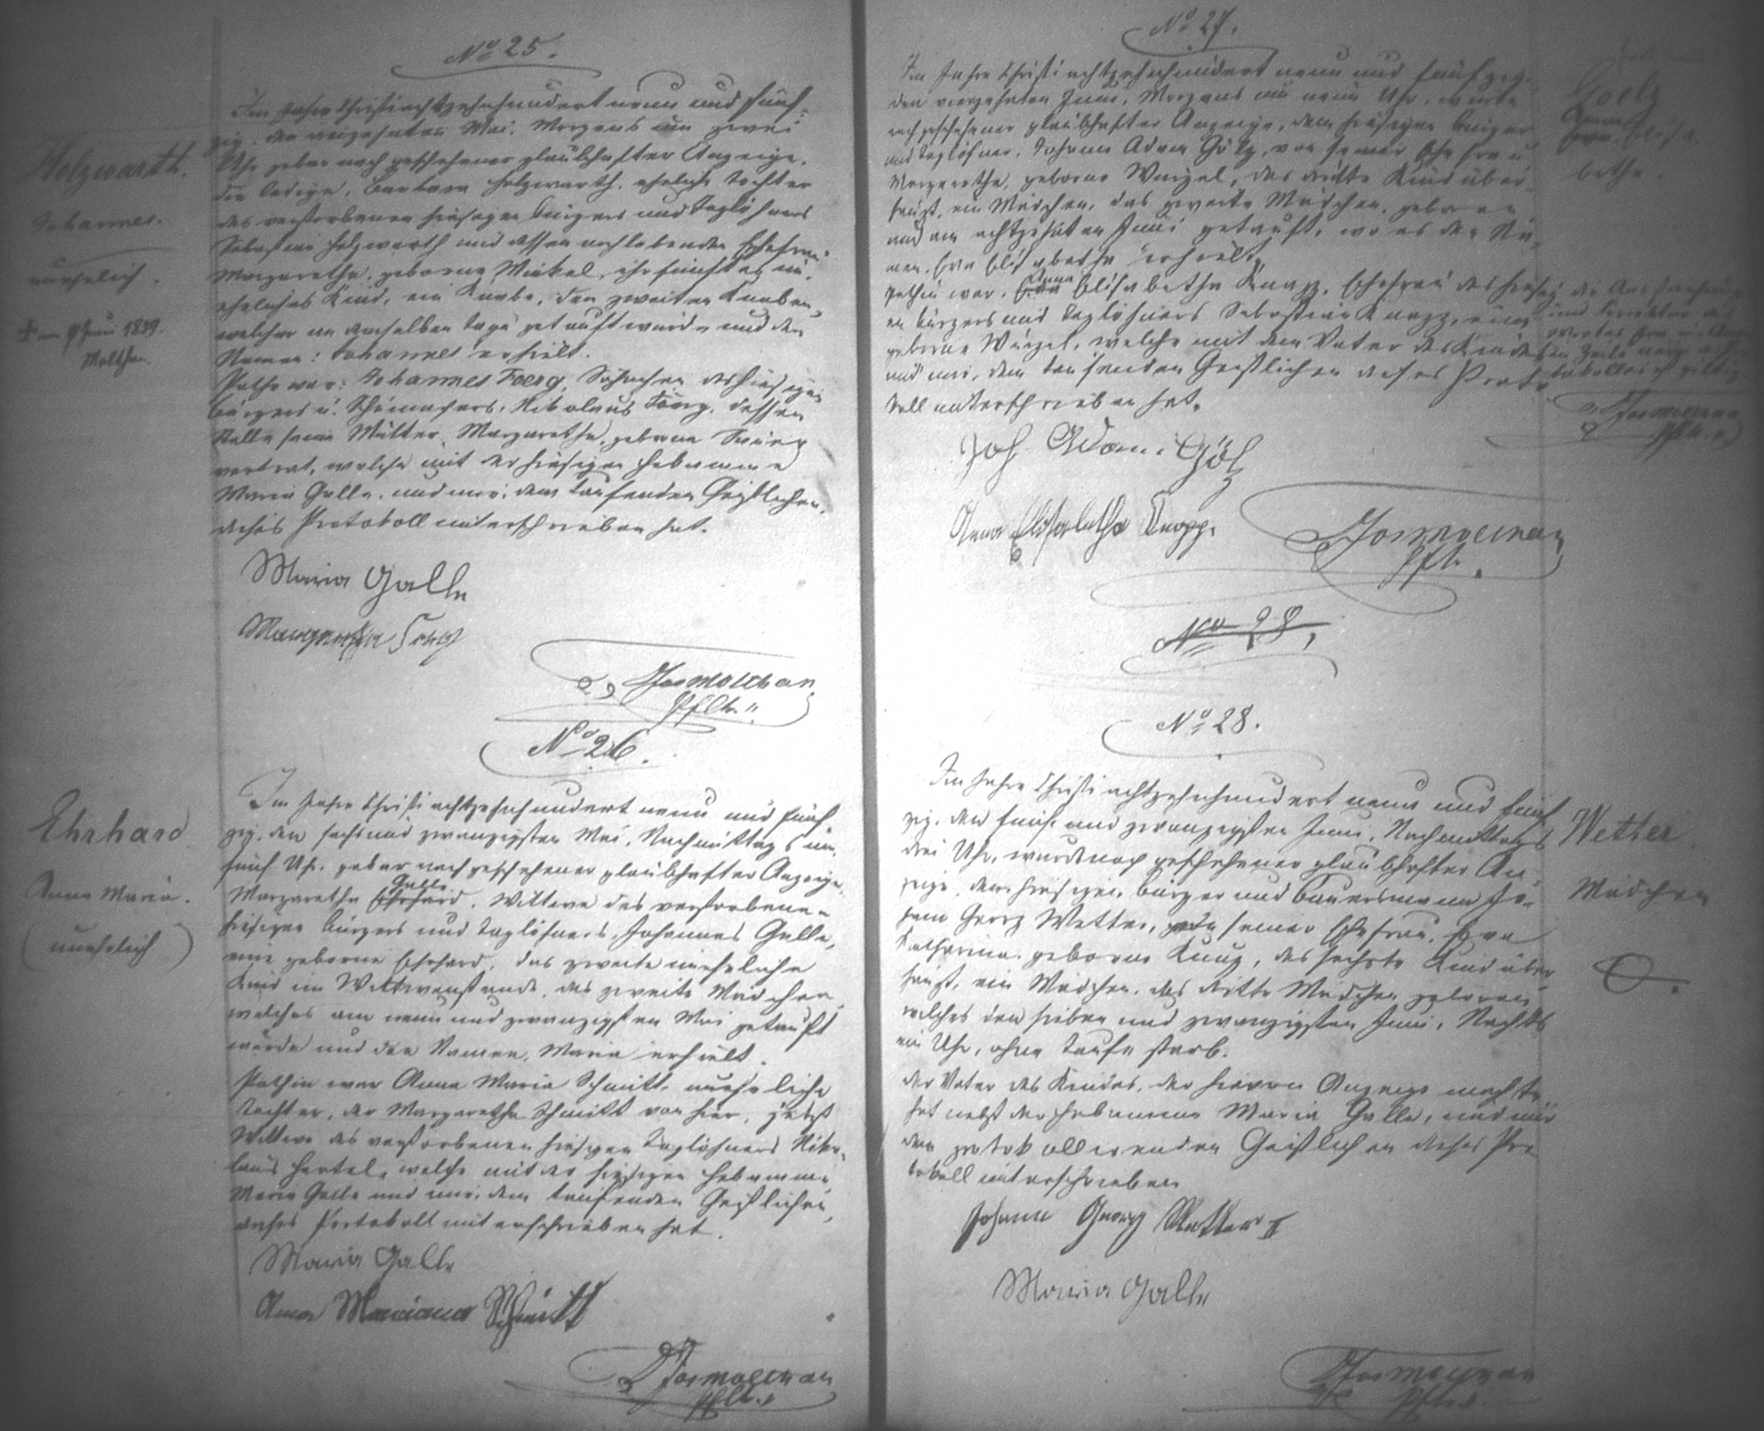 No 25.
Holzwarth.
Johannes.
unehelich.
Im Jahre Christi achtzehnhundert neun und fünf-
zig, den vierzehnten Mai, Morgens um zwei
Uhr gebar nach geschehener glaubhafter Anzeige,
die ledige, Barbara Holzwarth, eheliche Tochter
des verstorbenen hiesigen Bürgers und Taglöhners
Sebastian Holzwarth und dessen nachlebenden Ehefrau
Margaretha, geborene Winkel, ihr fünftes un-
eheliches Kind, ein Knabe, den zweiten Knaben,
welcher am demselben Tage getauft wurde und den
Namen: Johannes erhielt.
Pathe war: Johannes Foerg, Söhnchen des hiesigen
Bürgers u. Schumachers, Nikolaus Förg, dessen
Stelle seine Mutter, Margaretha, geborene
vertrat, welche mit der hiesigen Hebamme
Maria Galle, und mir, dem taufenden Geistlichen,
dieses Protokoll unterschrieben hat.
Maria Galle
Margaretha Förg
Pfr.
No 26.
Ehrhard
Anna Maria.
(unehelich)
Im Jahre Christi achtzehnhundert neun und fünf-
zig, den sechs und zwanzigsten Mai, Nachmittags um
fünf Uhr, gebar nach geschehener glaubhafter Anzeige,
Galle
Margaretha Ehrhard, Wittwe des verstorbenen
hiesigen Bürgers und Taglöhners, Johannes Galle,
eine geborene Ehrhard, das zweite uneheliche
Kind im Wittwenstande, das zweite Mädchen,
welches am neun und zwanzigsten Mai getauft
wurde und den Namen, Maria erhielt.
Pathin war Anna Maria Schmitt, uneheliche
Tochter, der Margaretha Schmitt von hier, jetzt
Wittwe des verstorbenen hiesigen Taglöhners Niko-
laus Hertel, welche mit der hiesigen Hebamme
Maria Galle und mir, dem taufenden Geistlichen,
dieses Protokoll unterschrieben hat.
Maria Galle
Anna Mariana Schmitt
Pfr.
No 27.
Goelz
Im Jahre Christi achtzehnhundert neun und fünfzig,
den vierzehnten Juni, Morgens um neun Uhr, wurde
nach geschehener glaubhafter Anzeige, dem hiesigen Bürger
und Taglöhner, Johann Adam Götz, von seiner Ehefrau
Margaretha, geborene Wurzel, das dritte Kind über-
haupt, ein Mädchen, das zweite Mädchen, geboren
und am achtzehnten Juni getauft, wo es den Na-
men, Eva Elisabetha erhielt.
Anna
Pathin war, Eva Elisabetha Knapp, Ehefrau des hiesig-
en Bürgers und Taglöhners Sebastian Knapp, eine
geborene Wurzel, welche mit dem Vater des Kindes
und mir, dem taufenden Geistlichen dieses Proto-
koll unterschrieben hat.
Joh. Adam Götz
Anna Elisabetha Knapp.
Pfr.
No 28,
No 28.
Wetter
Mädchen
Im Jahre Christi achtzehnhundert neun und fünf-
zig, den fünf und zwanzigsten Juni, Nachmittags
drei Uhr, wurde nach geschehener glaubhafter An-
zeige, dem hiesigen Bürger und Bauersmann Jo-
hann Georg Wetter, von seiner Ehefrau, Eva
Katharina, geborene Kunz, das sechste Kind über-
haupt, ein Mädchen, das dritte Mädchen geboren,
welches den sieben und zwanzigsten Juni, Nachts
ein Uhr, ohne Taufe starb.
Der Vater des Kindes, der hievon Anzeige machte,
hat nebst der Hebamme Maria Galle, und mir
dem protokollirenden Geistlichen dieses Pro-
tokoll unterschrieben
Johann Georg Wetter II
Maria Galle
Pfr.